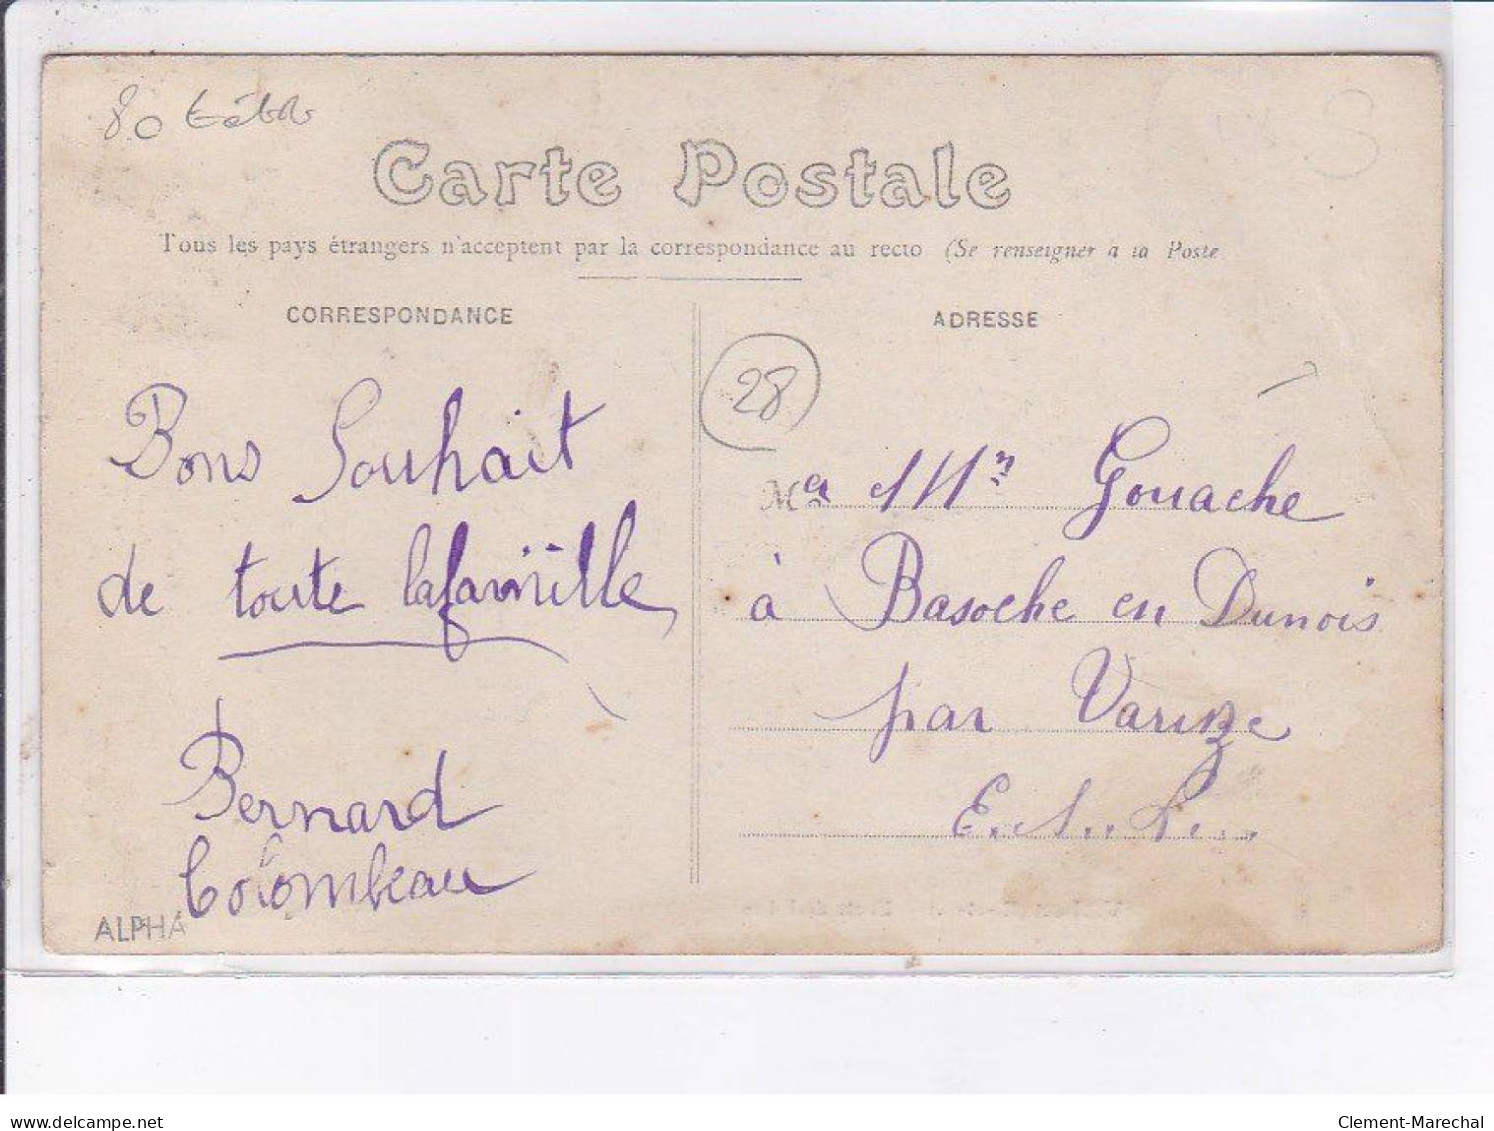 80
Carte Postale
Tous les pays étrangers n'acceptent par la correspondance au recto (Se renseigner à la Poste
CORRESPONDANCE
ADRESSE
28
Bons Souhait
de toute lafamille
Bernard
Colombeau
ALPHA
Gouache
à Basoche en Dunois
par Varize
E. & L.
delcampe.net
Clement-Marechal